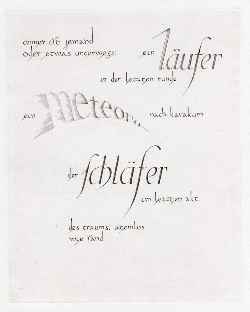 immer ist jemand
oder etwas unterwegs: ein läufer
in der letzten runde
ein meteor... nach karakum
der schläfer
im letzten akt
des traums, atemlos